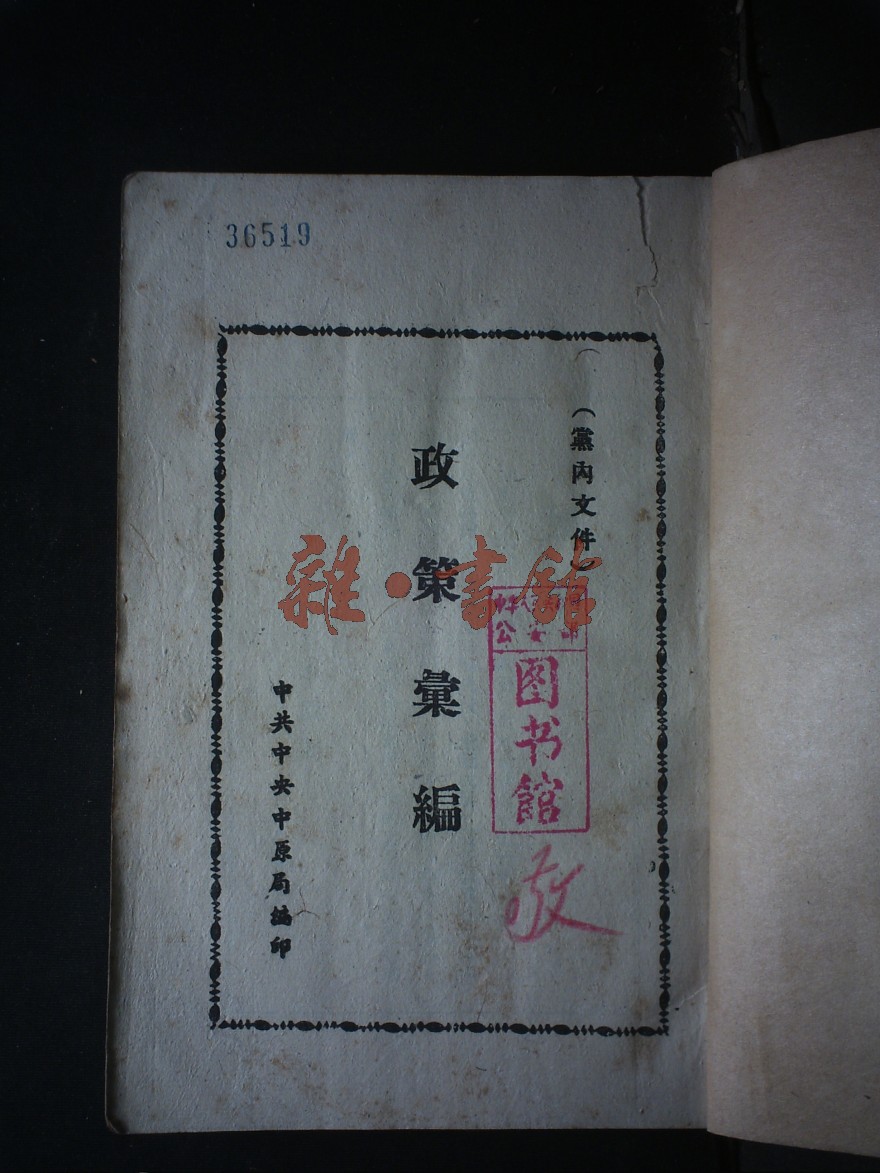 36519
（黨內文件）
政策彙編
中共中央中原局編印
雜·書館
公安
图书馆